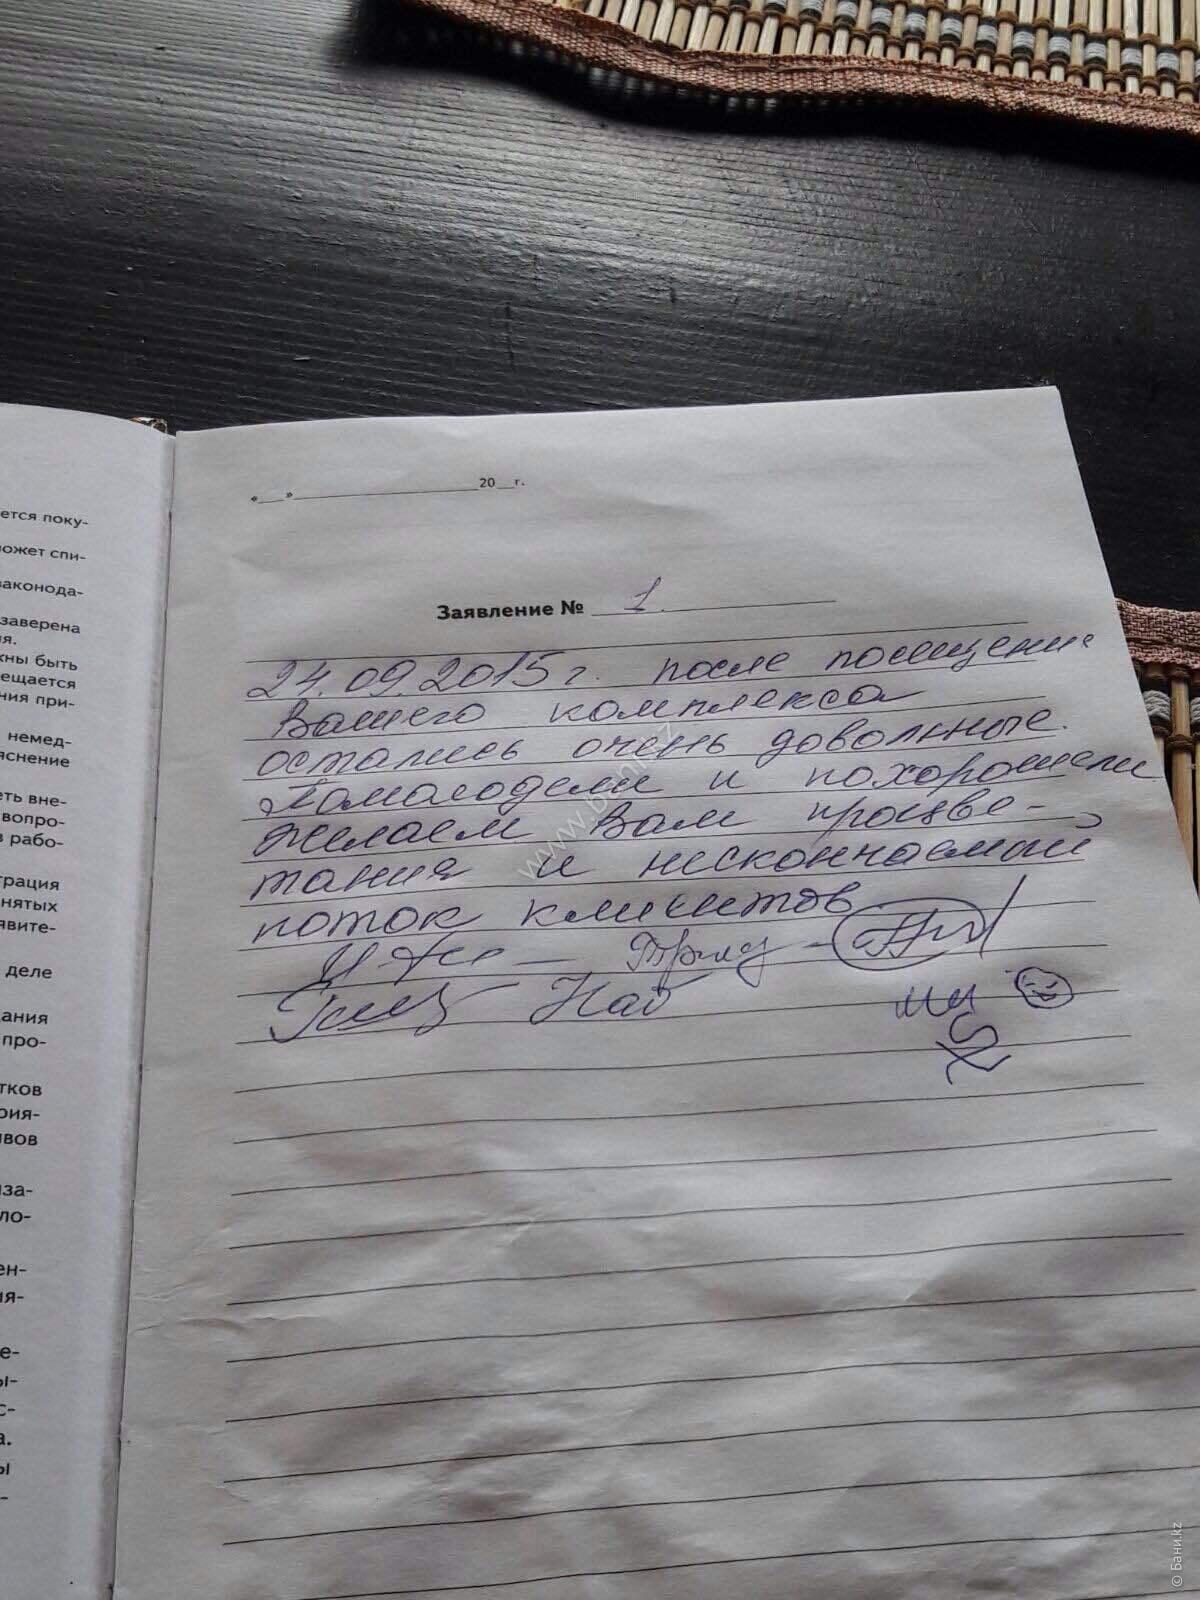 ется поку-
может спи-
законода-
заверена
ия.
жны быть
ещается
ния при-
немед-
яснение
еть вне-
вопро-
в рабо-
трация
нятых
явите-
деле
дания
про-
тков
рия-
ивов
иза-
ло-
ен-
ия-
е-
ы-
с-
а.
ы
-
«___»____________20__г.
Заявление № 1.
24.09.2015г. после посещения
Вашего комплекса
остались очень довольные.
Помолодели и похорошели
Желаем Вам процве-
тания и нескончаемый
поток клиентов
www.bani.kz
© Бани.kz